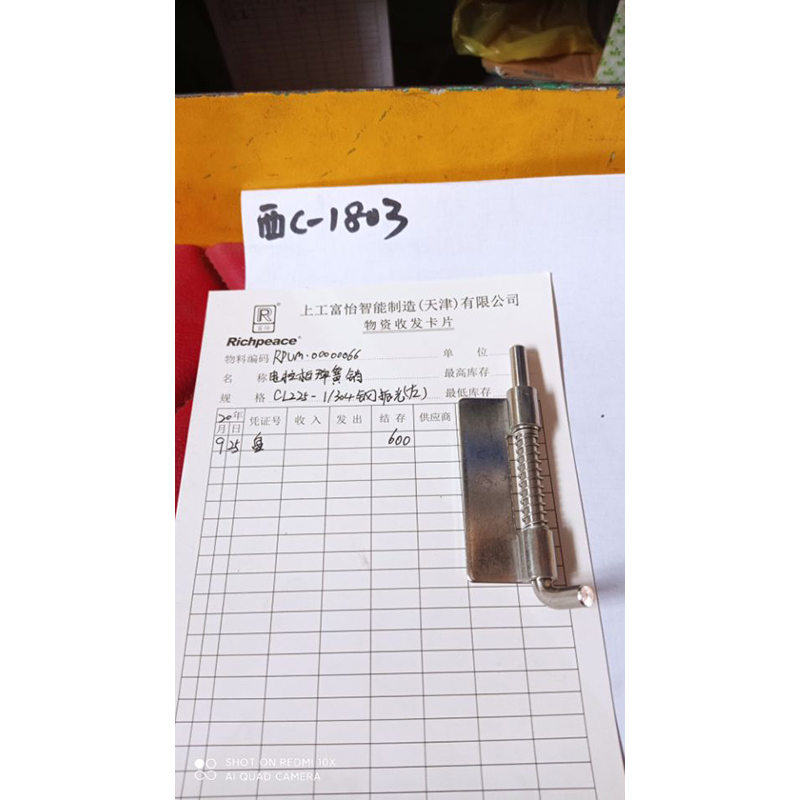 西C-1803
R
富怡
®
上工富怡智能制造(天津)有限公司
Richpeace®
物资收发卡片
物料编码 RPUM-00000066 单 位
名 称 电控柜弹簧销 最高库存
规 格 CL225-1/304钢振光(左) 最低库存
20年 凭证号 收入 发出 结存 供应商
月 日
9 25 盘 600
SHOT ON REDMI 10X
AI QUAD CAMERA